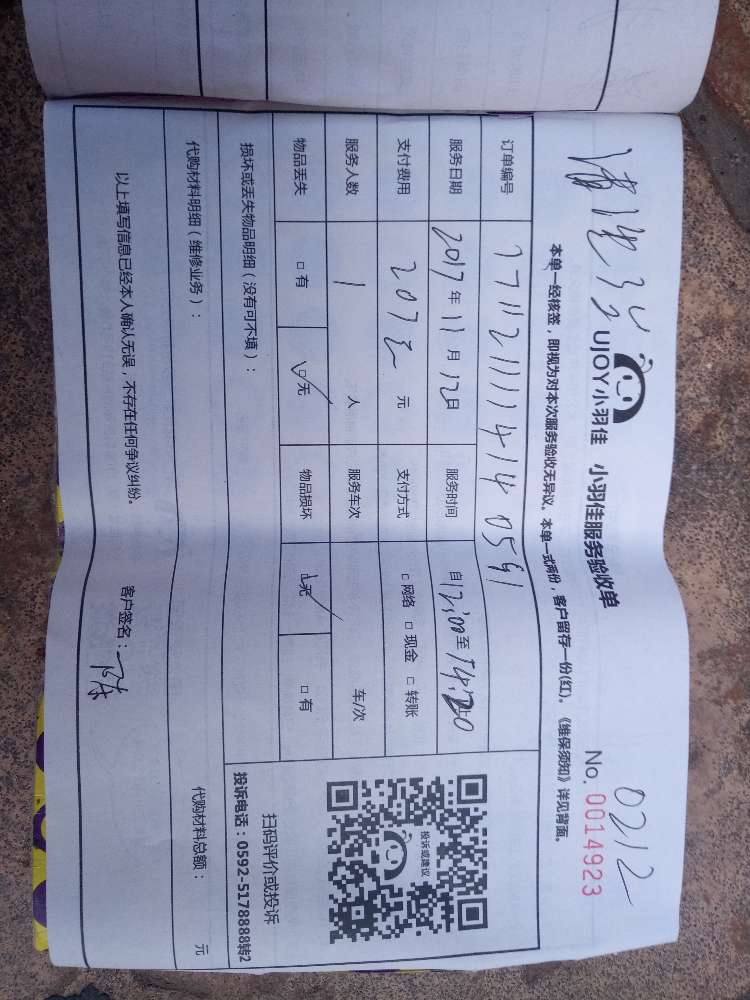 0212
UJOY小羽佳 小羽佳服务验收单 No. 0014923
本单一经核签，即视为对本次服务验收无异议。本单一式两份，客户留存一份(红)。《维保须知》详见背面。
订单编号
服务日期 2017年 11月 12日 服务时间 自12:00至14:20止
支付费用 207元 支付方式 □ 网络 □ 现金 □ 转账
服务人数 1 人 服务车次 车/次
物品丢失 □ 有 □ 无 物品损坏 □ 无 □ 有
损坏或丢失物品明细（没有可不填）：
代购材料明细（维修业务）： 代购材料总额： 元
以上填写信息已经本人确认无误，不存在任何争议纠纷。
客户签名：陈
投诉或建议
扫码评价或投诉
投诉电话：0592-5178888转2